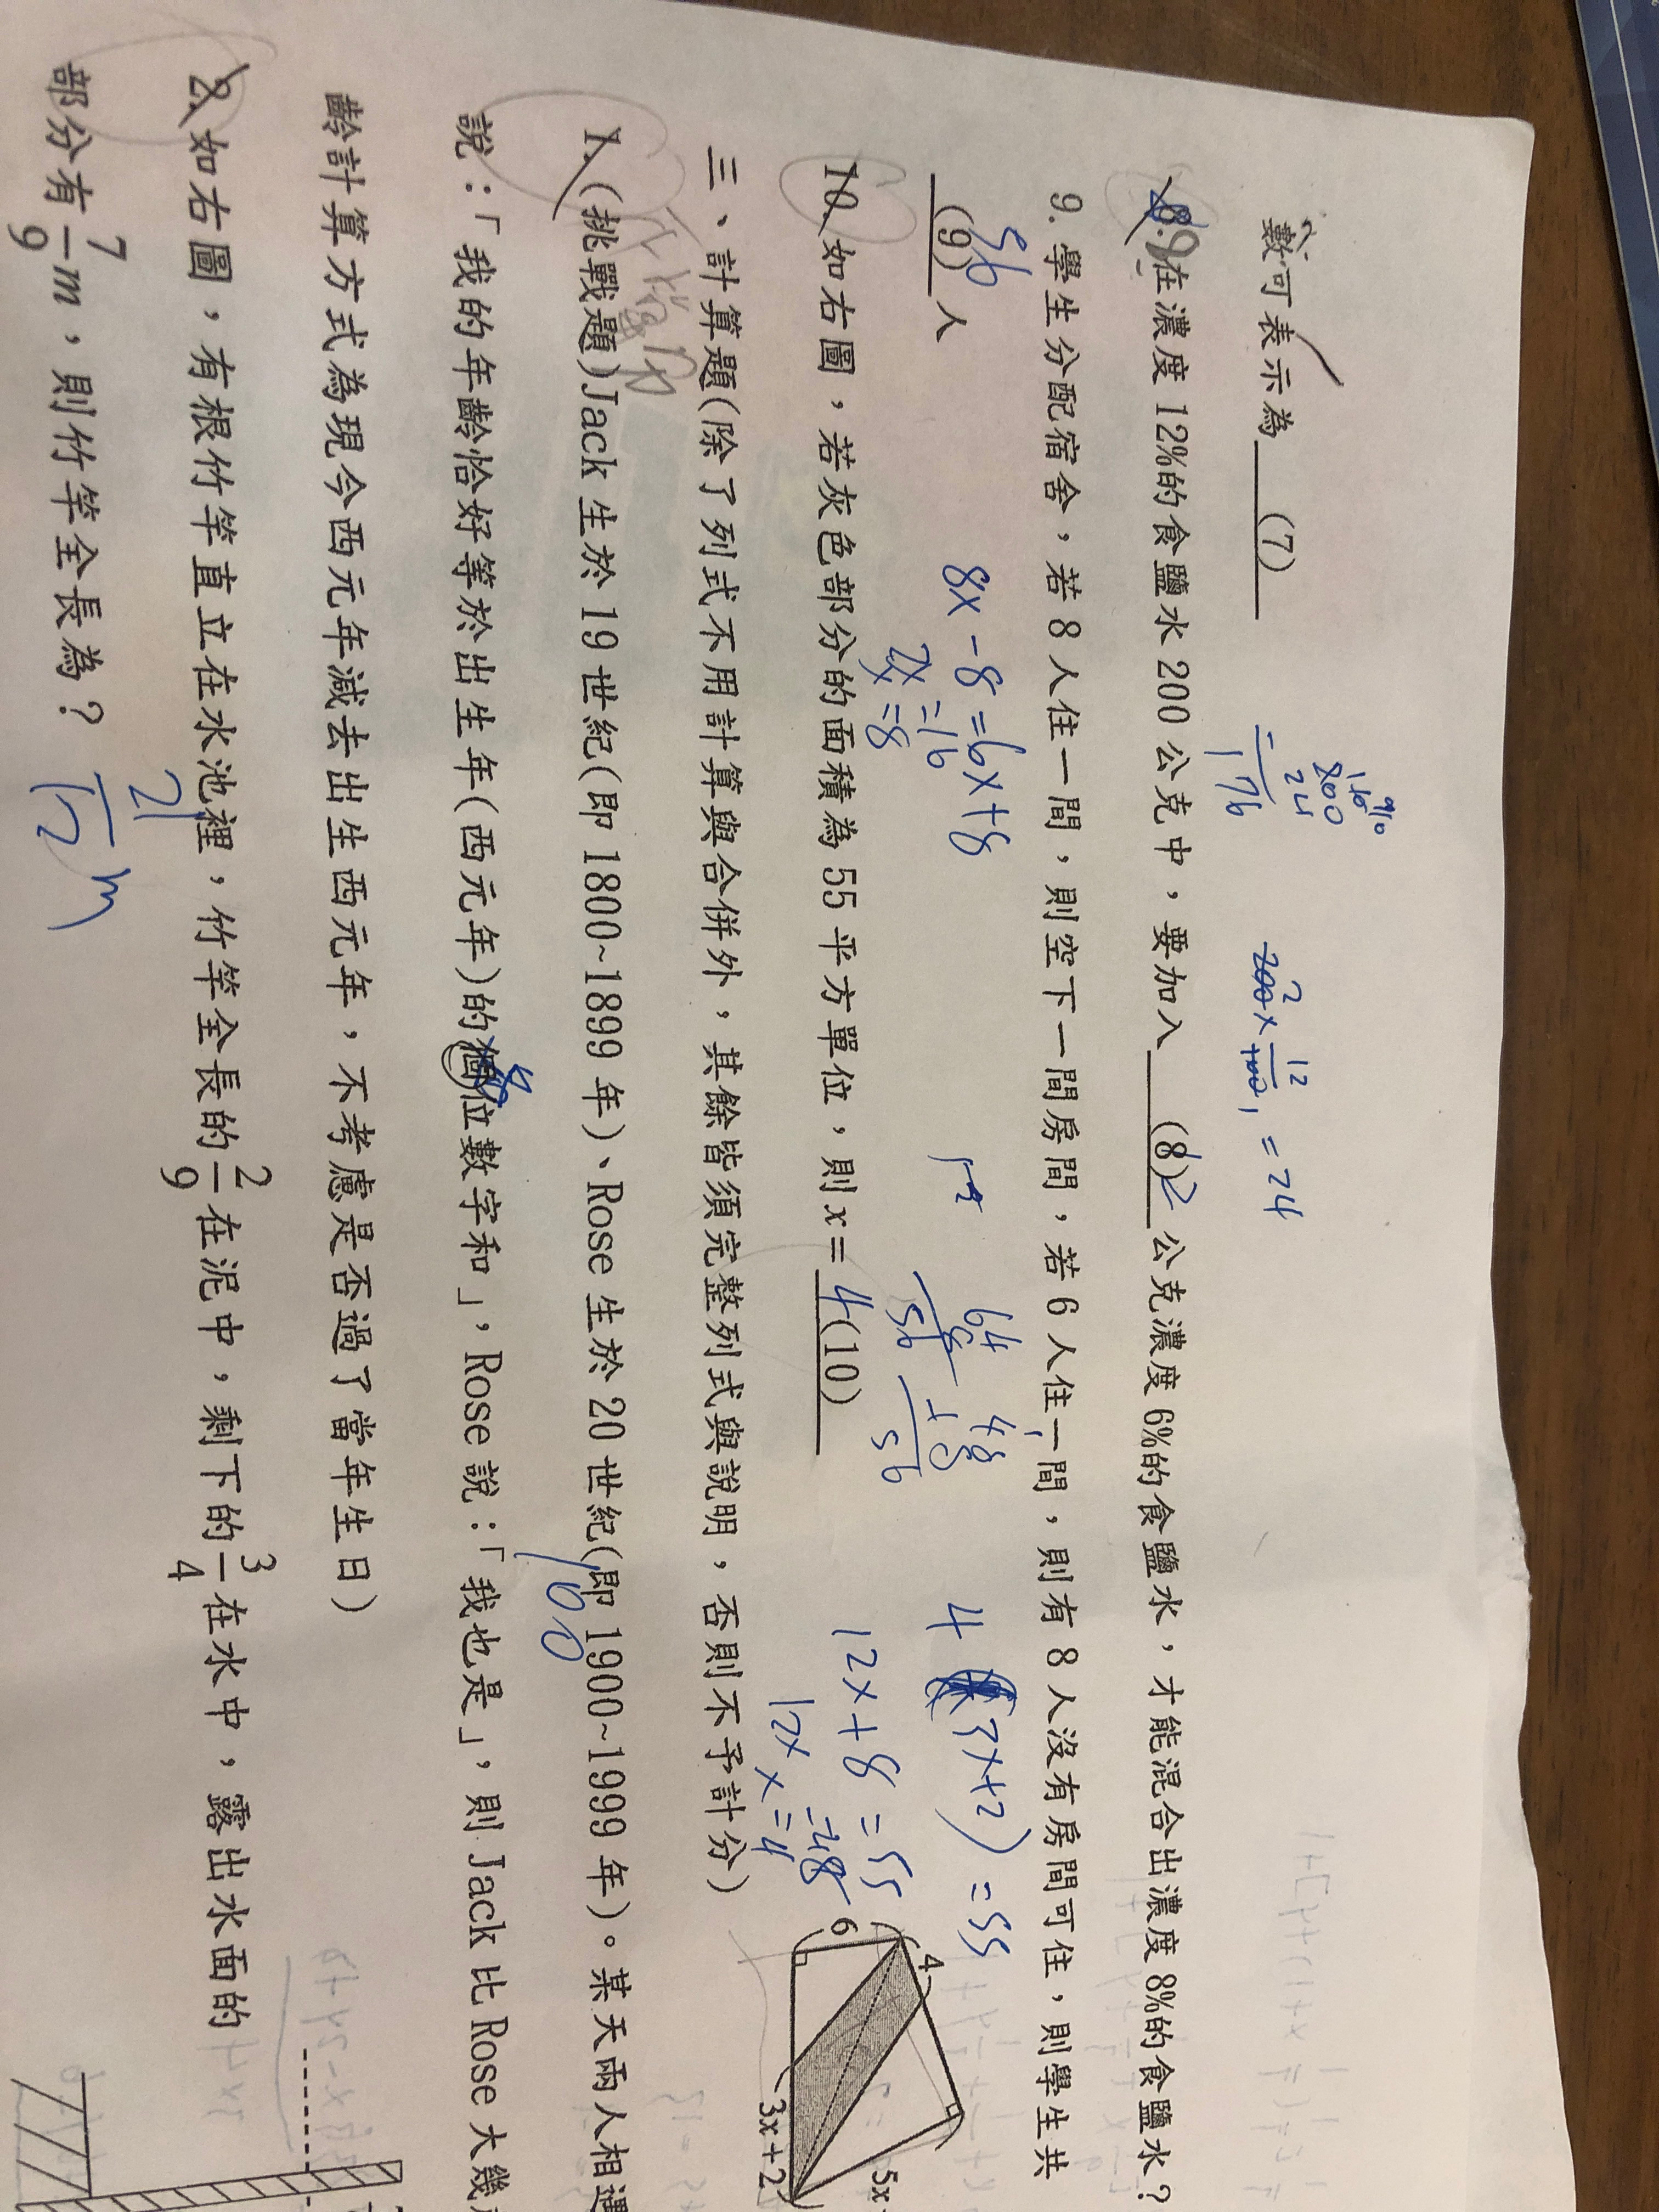 數可表示為 (7)
200
24
176
200×12/100=24
8.在濃度 12%的食鹽水 200 公克中，要加入 (8) 公克濃度 6%的食鹽水，才能混合出濃度 8%的食鹽水？
9.學生分配宿舍，若 8 人住一間，則空下一間房間，若 6 人住一間，則有 8 人沒有房間可住，則學生共
56
(9) 人
8x-8=6x+8
2x=16
x=8
64
8
56
48
+8
56
4 (3x+2)=55
12x+8=55
12x=48
x=4
10.如右圖，若灰色部分的面積為 55 平方單位，則x= 4(10)
4
6
5x
3x+2
三、計算題(除了列式不用計算與合併外，其餘皆須完整列式與說明，否則不予計分)
1.(挑戰題)Jack 生於 19 世紀(即 1800~1899 年)、Rose 生於 20 世紀(即 1900~1999 年)。某天兩人相遇
100
說：「我的年齡恰好等於出生年(西元年)的個位數字和」，Rose 說：「我也是」，則 Jack 比 Rose 大幾
齡計算方式為現今西元年減去出生西元年，不考慮是否過了當年生日)
2.如右圖，有根竹竿直立在水池裡，竹竿全長的 2/9 在泥中，剩下的 3/4 在水中，露出水面的
部分有 7/9 m，則竹竿全長為？